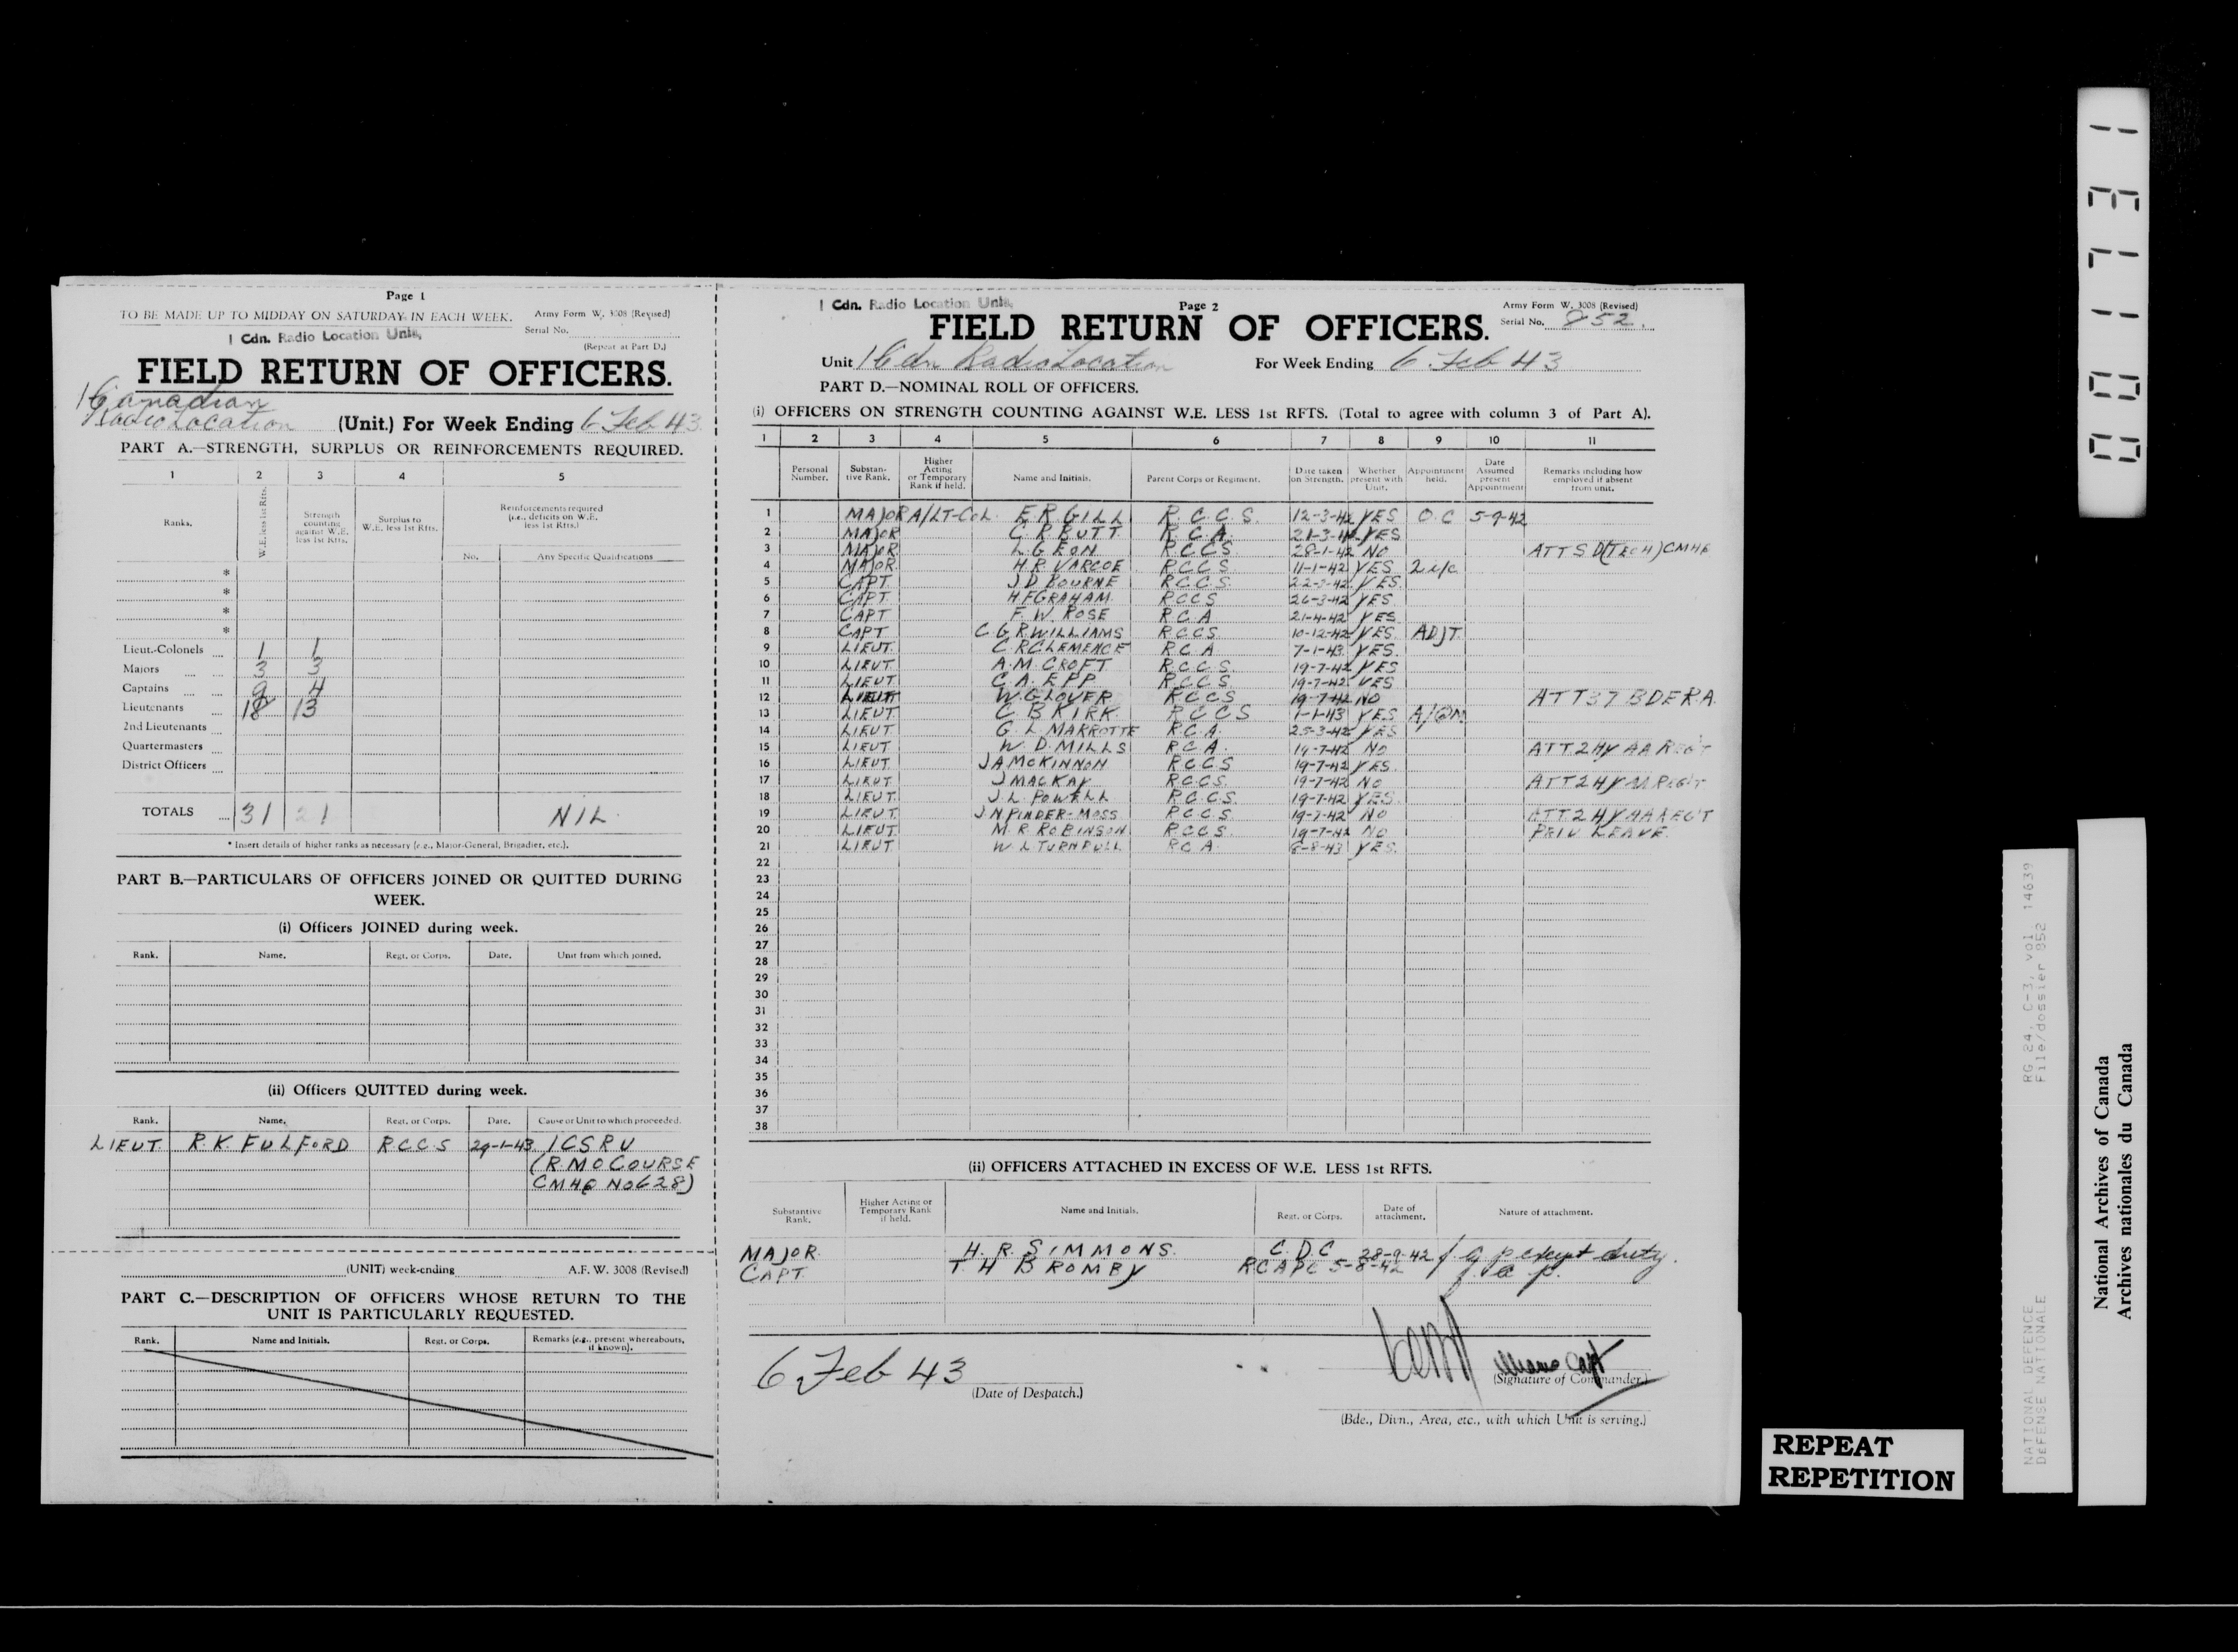 Page 1
TO BE MADE UP TO MIDDAY ON SATURDAY IN EACH WEEK.
Army Form W. 3008 (Revised)
Serial No.
(Repeat at Part D.)
1 Cdn. Radio Location Unit,
FIELD RETURN OF OFFICERS.
1 Canadian
Radio Location (Unit.) For Week Ending 6 Feb 43
PART A.—STRENGTH, SURPLUS OR REINFORCEMENTS REQUIRED.
1 2 3 4 5
Ranks. W.E. less 1st Rfts. Strength counting against W.E. less 1st Rfts. Surplus to W.E. less 1st Rfts. Reinforcements required (i.e., deficits on W.E. less 1st Rfts.)
No. Any Specific Qualifications
*
*
*
*
Lieut.-Colonels 1 1
Majors 3 3
Captains 9 4
Lieutenants 18 13
2nd Lieutenants
Quartermasters
District Officers
TOTALS 31 21 NIL
* Insert details of higher ranks as necessary (e.g., Major-General, Brigadier, etc.).
PART B.—PARTICULARS OF OFFICERS JOINED OR QUITTED DURING
WEEK.
(i) Officers JOINED during week.
Rank. Name. Regt. or Corps. Date. Unit from which joined.
(ii) Officers QUITTED during week.
Rank. Name. Regt. or Corps. Date. Cause or Unit to which proceeded.
LIEUT. R.K. FULFORD R.C.C.S 29-1-43 1 CSRU
(RMO COURSE
CMHQ NO 628)
(UNIT) week-ending A.F. W. 3008 (Revised)
PART C.—DESCRIPTION OF OFFICERS WHOSE RETURN TO THE
UNIT IS PARTICULARLY REQUESTED.
Rank. Name and Initials. Regt. or Corps. Remarks (e.g., present whereabouts, if known).
1 Cdn. Radio Location Unit,
Page 2
Army Form W. 3008 (Revised)
FIELD RETURN OF OFFICERS.
Serial No. 852.
Unit 1 Cdn Radio Location For Week Ending 6 Feb 43
PART D.—NOMINAL ROLL OF OFFICERS.
(i) OFFICERS ON STRENGTH COUNTING AGAINST W.E. LESS 1st RFTS. (Total to agree with column 3 of Part A).
1 2 3 4 5 6 7 8 9 10 11
Personal Number. Substantive Rank. Higher Acting or Temporary Rank if held. Name and Initials. Parent Corps or Regiment. Date taken on Strength. Whether present with Unit. Appointment held. Date Assumed present Appointment Remarks including how employed if absent from unit.
1 MAJOR A/LT-COL. E.R GILL R.C.C.S. 12-3-42 YES O.C 5-9-42
2 MAJOR C.P. BUTT R.C.A. 21-3-42 YES
3 MAJOR L.G EON R.C.C.S 28-1-42 NO ATT S D(TECH) CMHQ
4 MAJOR H.R. VARCOE R.C.C.S. 11-1-42 YES 2 i/c
5 CAPT. J.D BOURNE R.C.C.S. 22-3-42 YES.
6 CAPT. H.F GRAHAM R.C.C.S 26-3-42 YES
7 CAPT F.W. ROSE R.C.A 21-4-42 YES.
8 CAPT C G R WILLIAMS R.C.C.S. 10-12-42 YES ADJT.
9 LIEUT. C.R CLEMENCE R.C.A 7-1-43 YES.
10 LIEUT A.M. CROFT R.C.C.S. 19-7-42 YES
11 LIEUT C.A. EPP R.C.C.S. 19-7-42 YES
12 LIEUT W. GLOVER R.C.C.S 19-7-42 NO ATT 37 BDE R.A.
13 LIEUT. C B KIRK R.C.C.S 1-1-43 YES A/QM
14 LIEUT G. L MARROTTE R.C.A. 25-3-42 YES
15 LIEUT W. D. MILLS R.C.A. 19-7-42 NO ATT. 2 HY AA REG'T
16 LIEUT J A McKINNON R.C.C.S 19-7-42 YES.
17 LIEUT J MACKAY R.C.C.S. 19-7-42 NO ATT 2 HY AA REG'T
18 LIEUT. J.L. POWELL R.C.C.S. 19-7-42 YES.
19 LIEUT. J.N. PINDER-MOSS R.C.C.S. 19-7-42 NO ATT. 2 HY AA REG'T
20 LIEUT. M. R. ROBINSON R.C.C.S. 19-7-42 NO PRIV LEAVE.
21 LIEUT W. L TURNBULL R.C.A. YES.
22
23
24
25
26
27
28
29
30
31
32
33
34
35
36
37
38
(ii) OFFICERS ATTACHED IN EXCESS OF W.E. LESS 1st RFTS.
Substantive Rank. Higher Acting or Temporary Rank if held. Name and Initials. Regt. or Corps. Date of attachment. Nature of attachment.
MAJOR. H. R. SIMMONS. C.D.C 28-9-42 f. a. p. except duty.
CAPT. T H BROMBY RCAPC 5-8-42 f. a. p.
6 Feb 43
(Date of Despatch.)
Capt
(Signature of Commander.)
(Bde., Divn., Area, etc., with which Unit is serving.)
REPEAT
REPETITION
001731
RG 24, C-3, vol. 14639
File/dossier 852
NATIONAL DEFENCE
DEFENSE NATIONALE
National Archives of Canada
Archives nationales du Canada